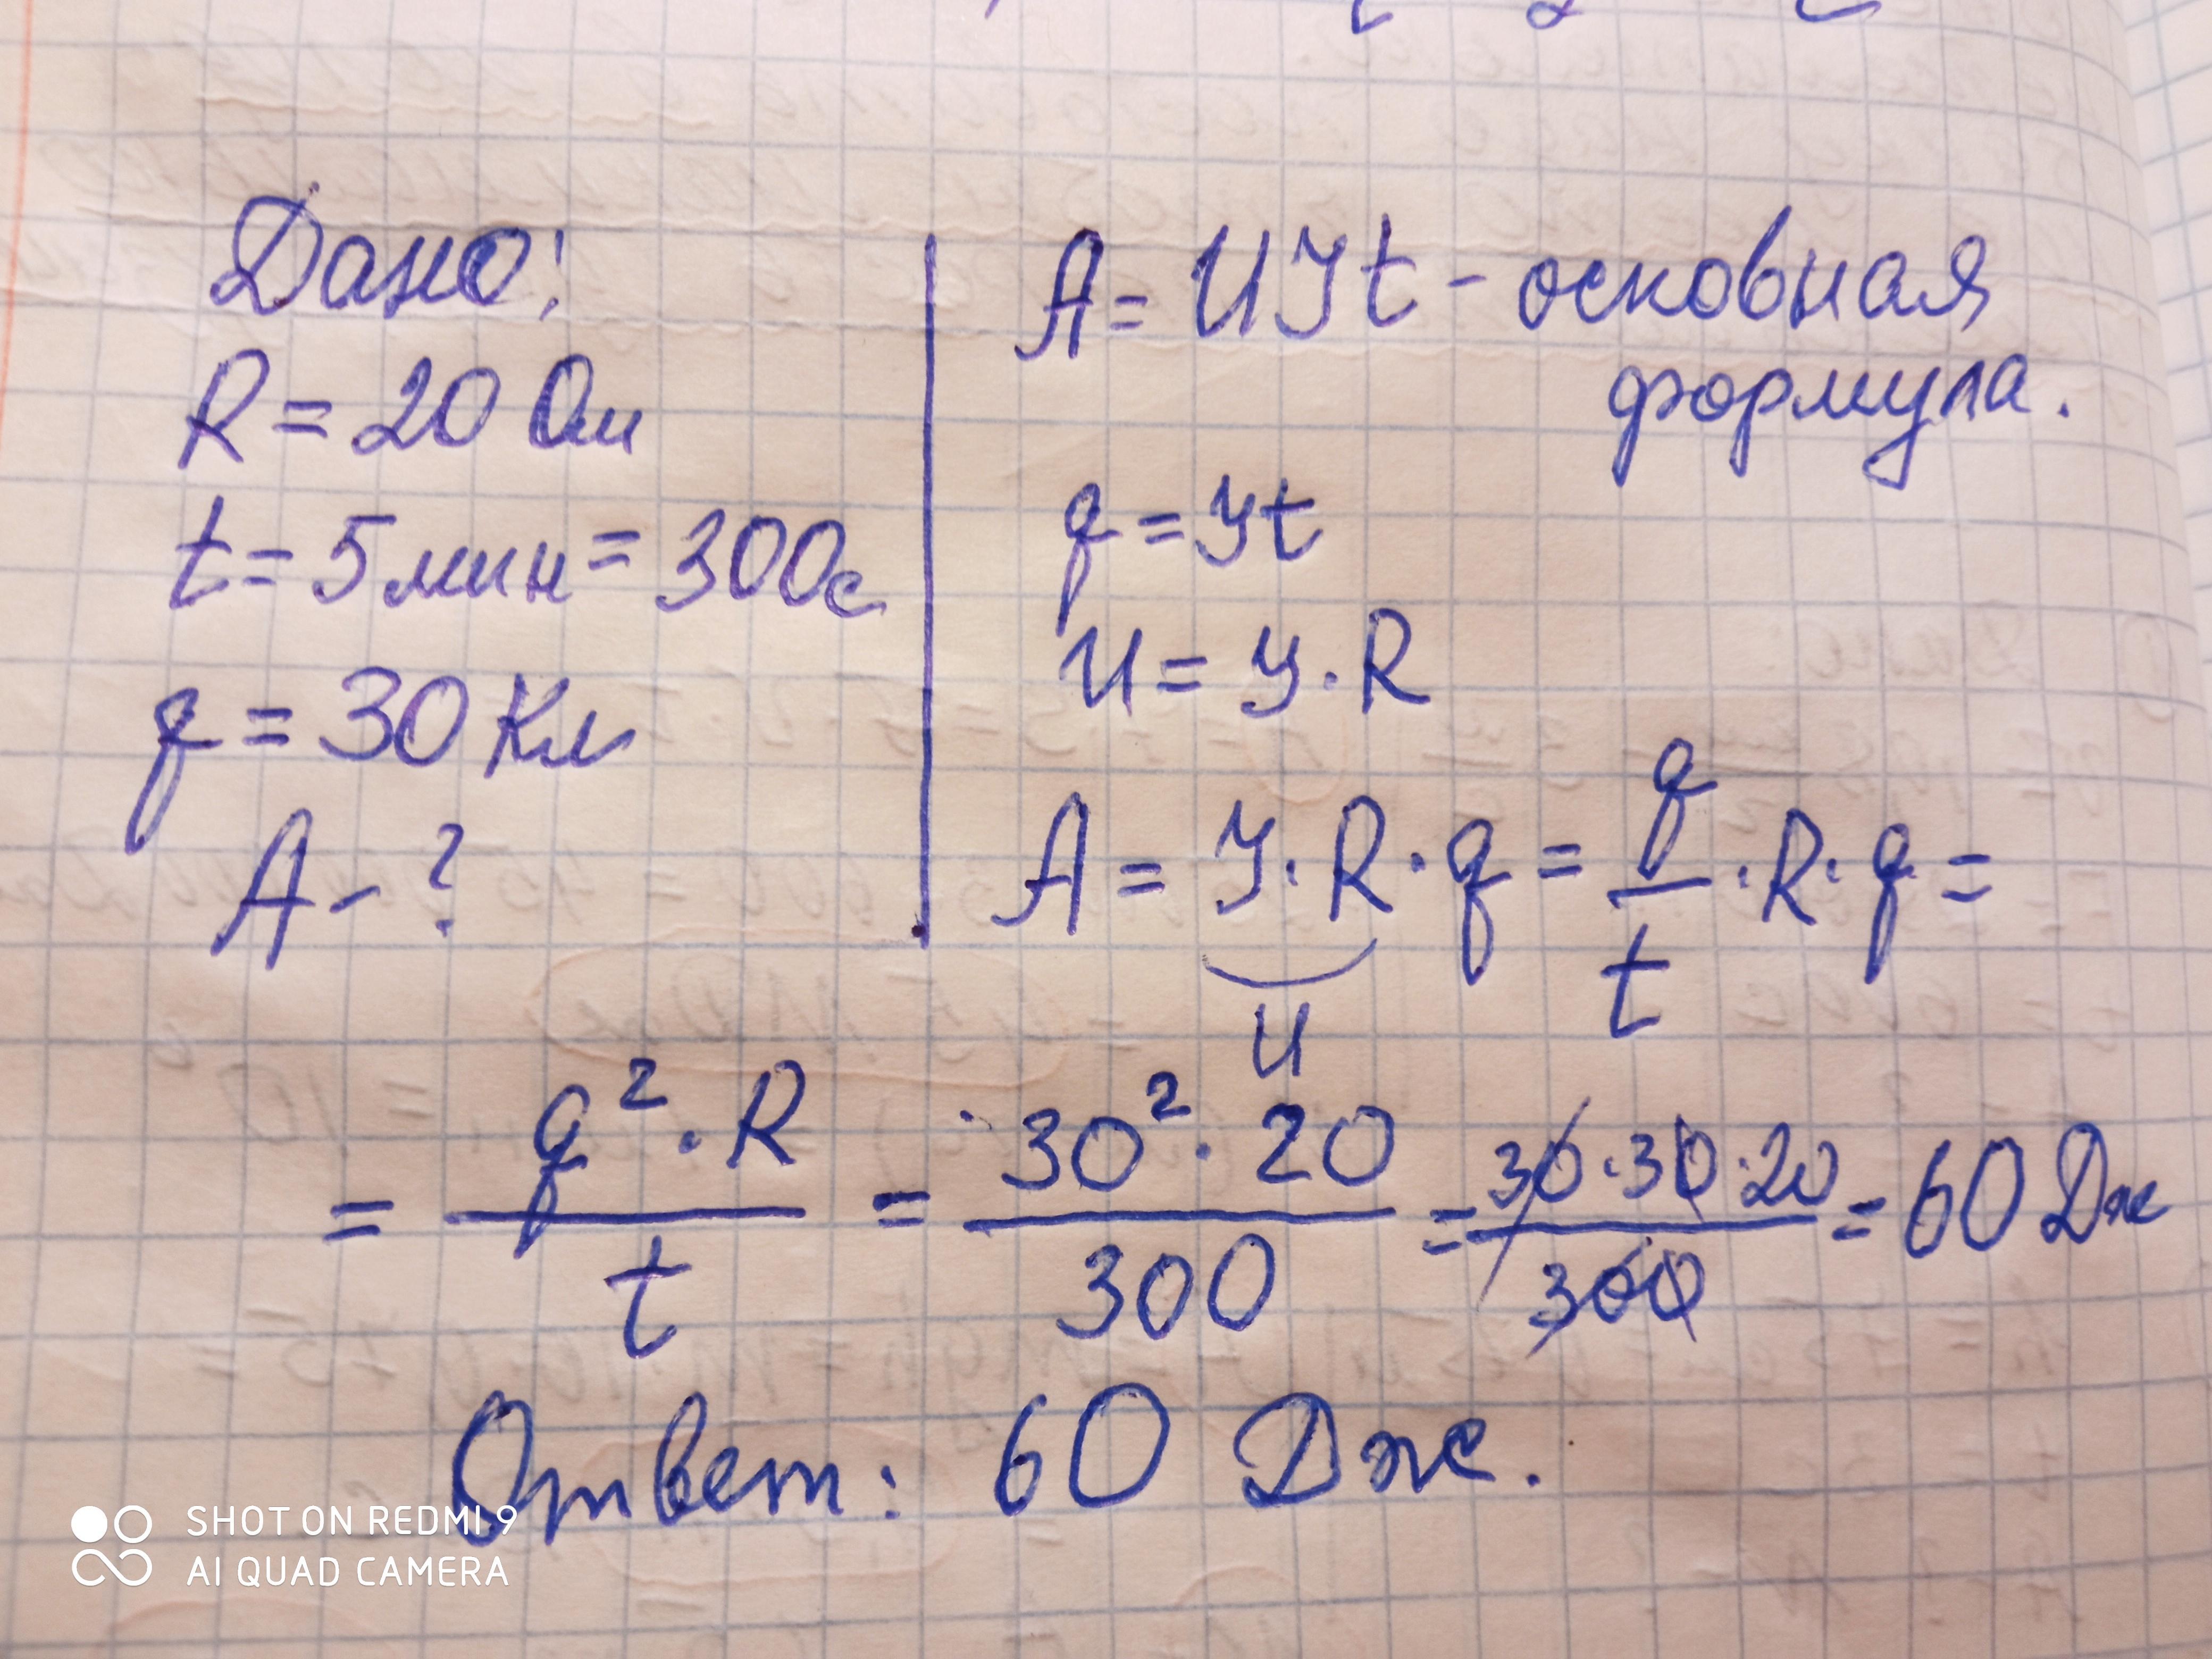 Дано:
R = 20 Ом
t = 5 мин = 300с
q = 30 Кл
A - ?
A = UIt - основная
формула.
q = It
U = I · R
A = I · R · q = q/t · R · q =
U
= q² · R / t = 30² · 20 / 300 = 30 · 30 · 20 / 300 = 60 Дж
Ответ: 60 Дж.
SHOT ON REDMI 9
AI QUAD CAMERA